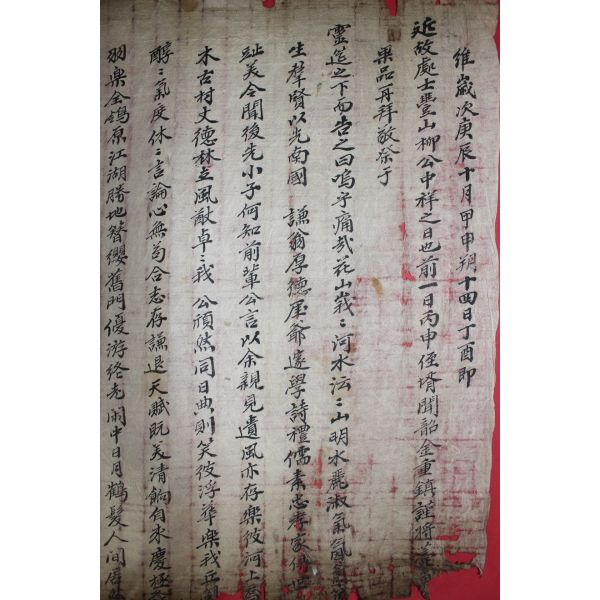 維歲次庚辰十月甲申朔十四日丁酉即
近故處士豊山柳公中祥之日也前一日丙申侄壻聞韶金重鎮謹將
果品再拜敬奠于
靈筵之下而告之曰嗚乎痛哉花山峩〻河水沄〻山明水麗淑氣
生羣賢以光南國 謙翁厚德厓爺邃學詩禮儒素忠孝家傳世
趾美令聞後先小子何知前輩公言以余親見遺風亦存樂彼河上
木古村丈德林立風猷卓〻我 公頎然同日典則笑彼浮華樂我丘
醇〻氣度休〻言論心無苟合志存謙退天賦既美清餉自来慶極
羽樂全鴒原江湖勝地簪纓舊門優游終老閒中日月鶴髮人間